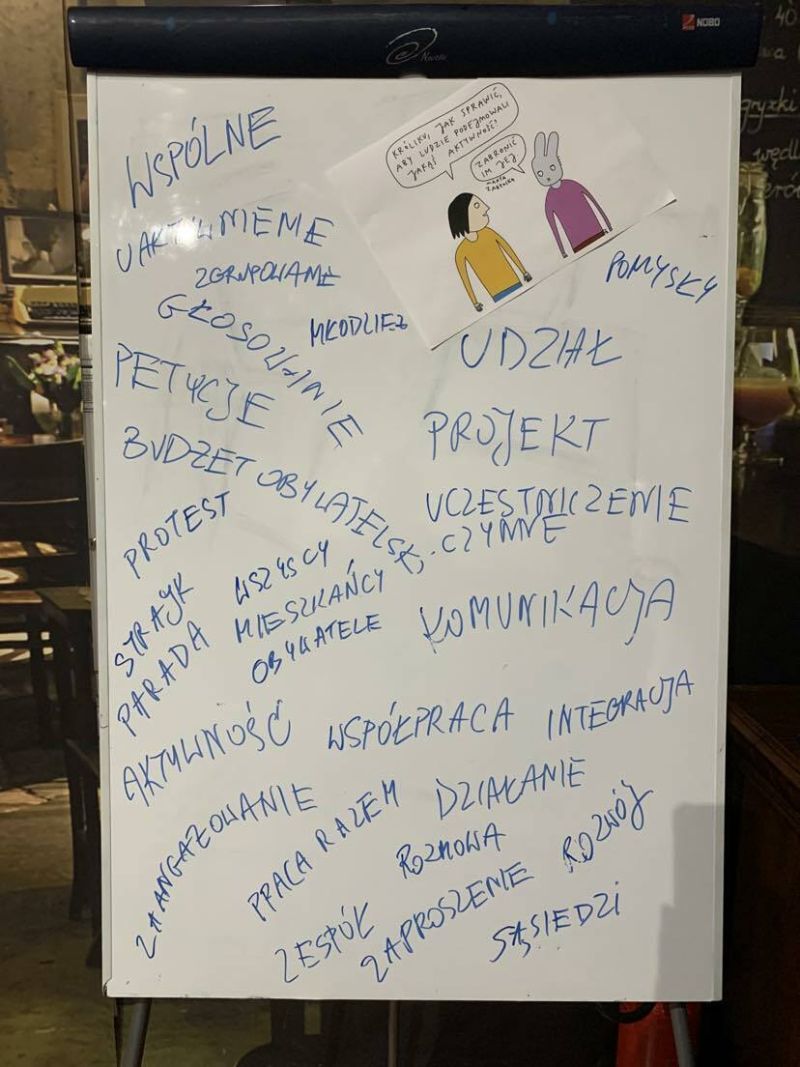 NOBO
WSPÓLNE
KRÓLIKU, JAK SPRAWIĆ,
ABY LUDZIE PODEJMOWALI
JAKĄŚ AKTYWNOŚĆ?
ZABRONIĆ
IM JEJ
UAKTYWNIENIE
ZGRUPOWANIE
POMYSŁY
GŁOSOWANIE
MŁODZIEŻ
UDZIAŁ
PETYCJE
PROJEKT
BUDŻET OBYWATELSKI
UCZESTNICZENIE
CZYNNE
PROTEST
STRAJK
PARADA
WSZYSCY
MIESZKAŃCY
OBYWATELE
KOMUNIKACJA
AKTYWNOŚĆ
WSPÓŁPRACA
INTEGRACJA
ZAANGAŻOWANIE
PRACA RAZEM
DZIAŁANIE
ROZMOWA
ROZWÓJ
ZESPÓŁ
ZAPROSZENIE
SĄSIEDZI